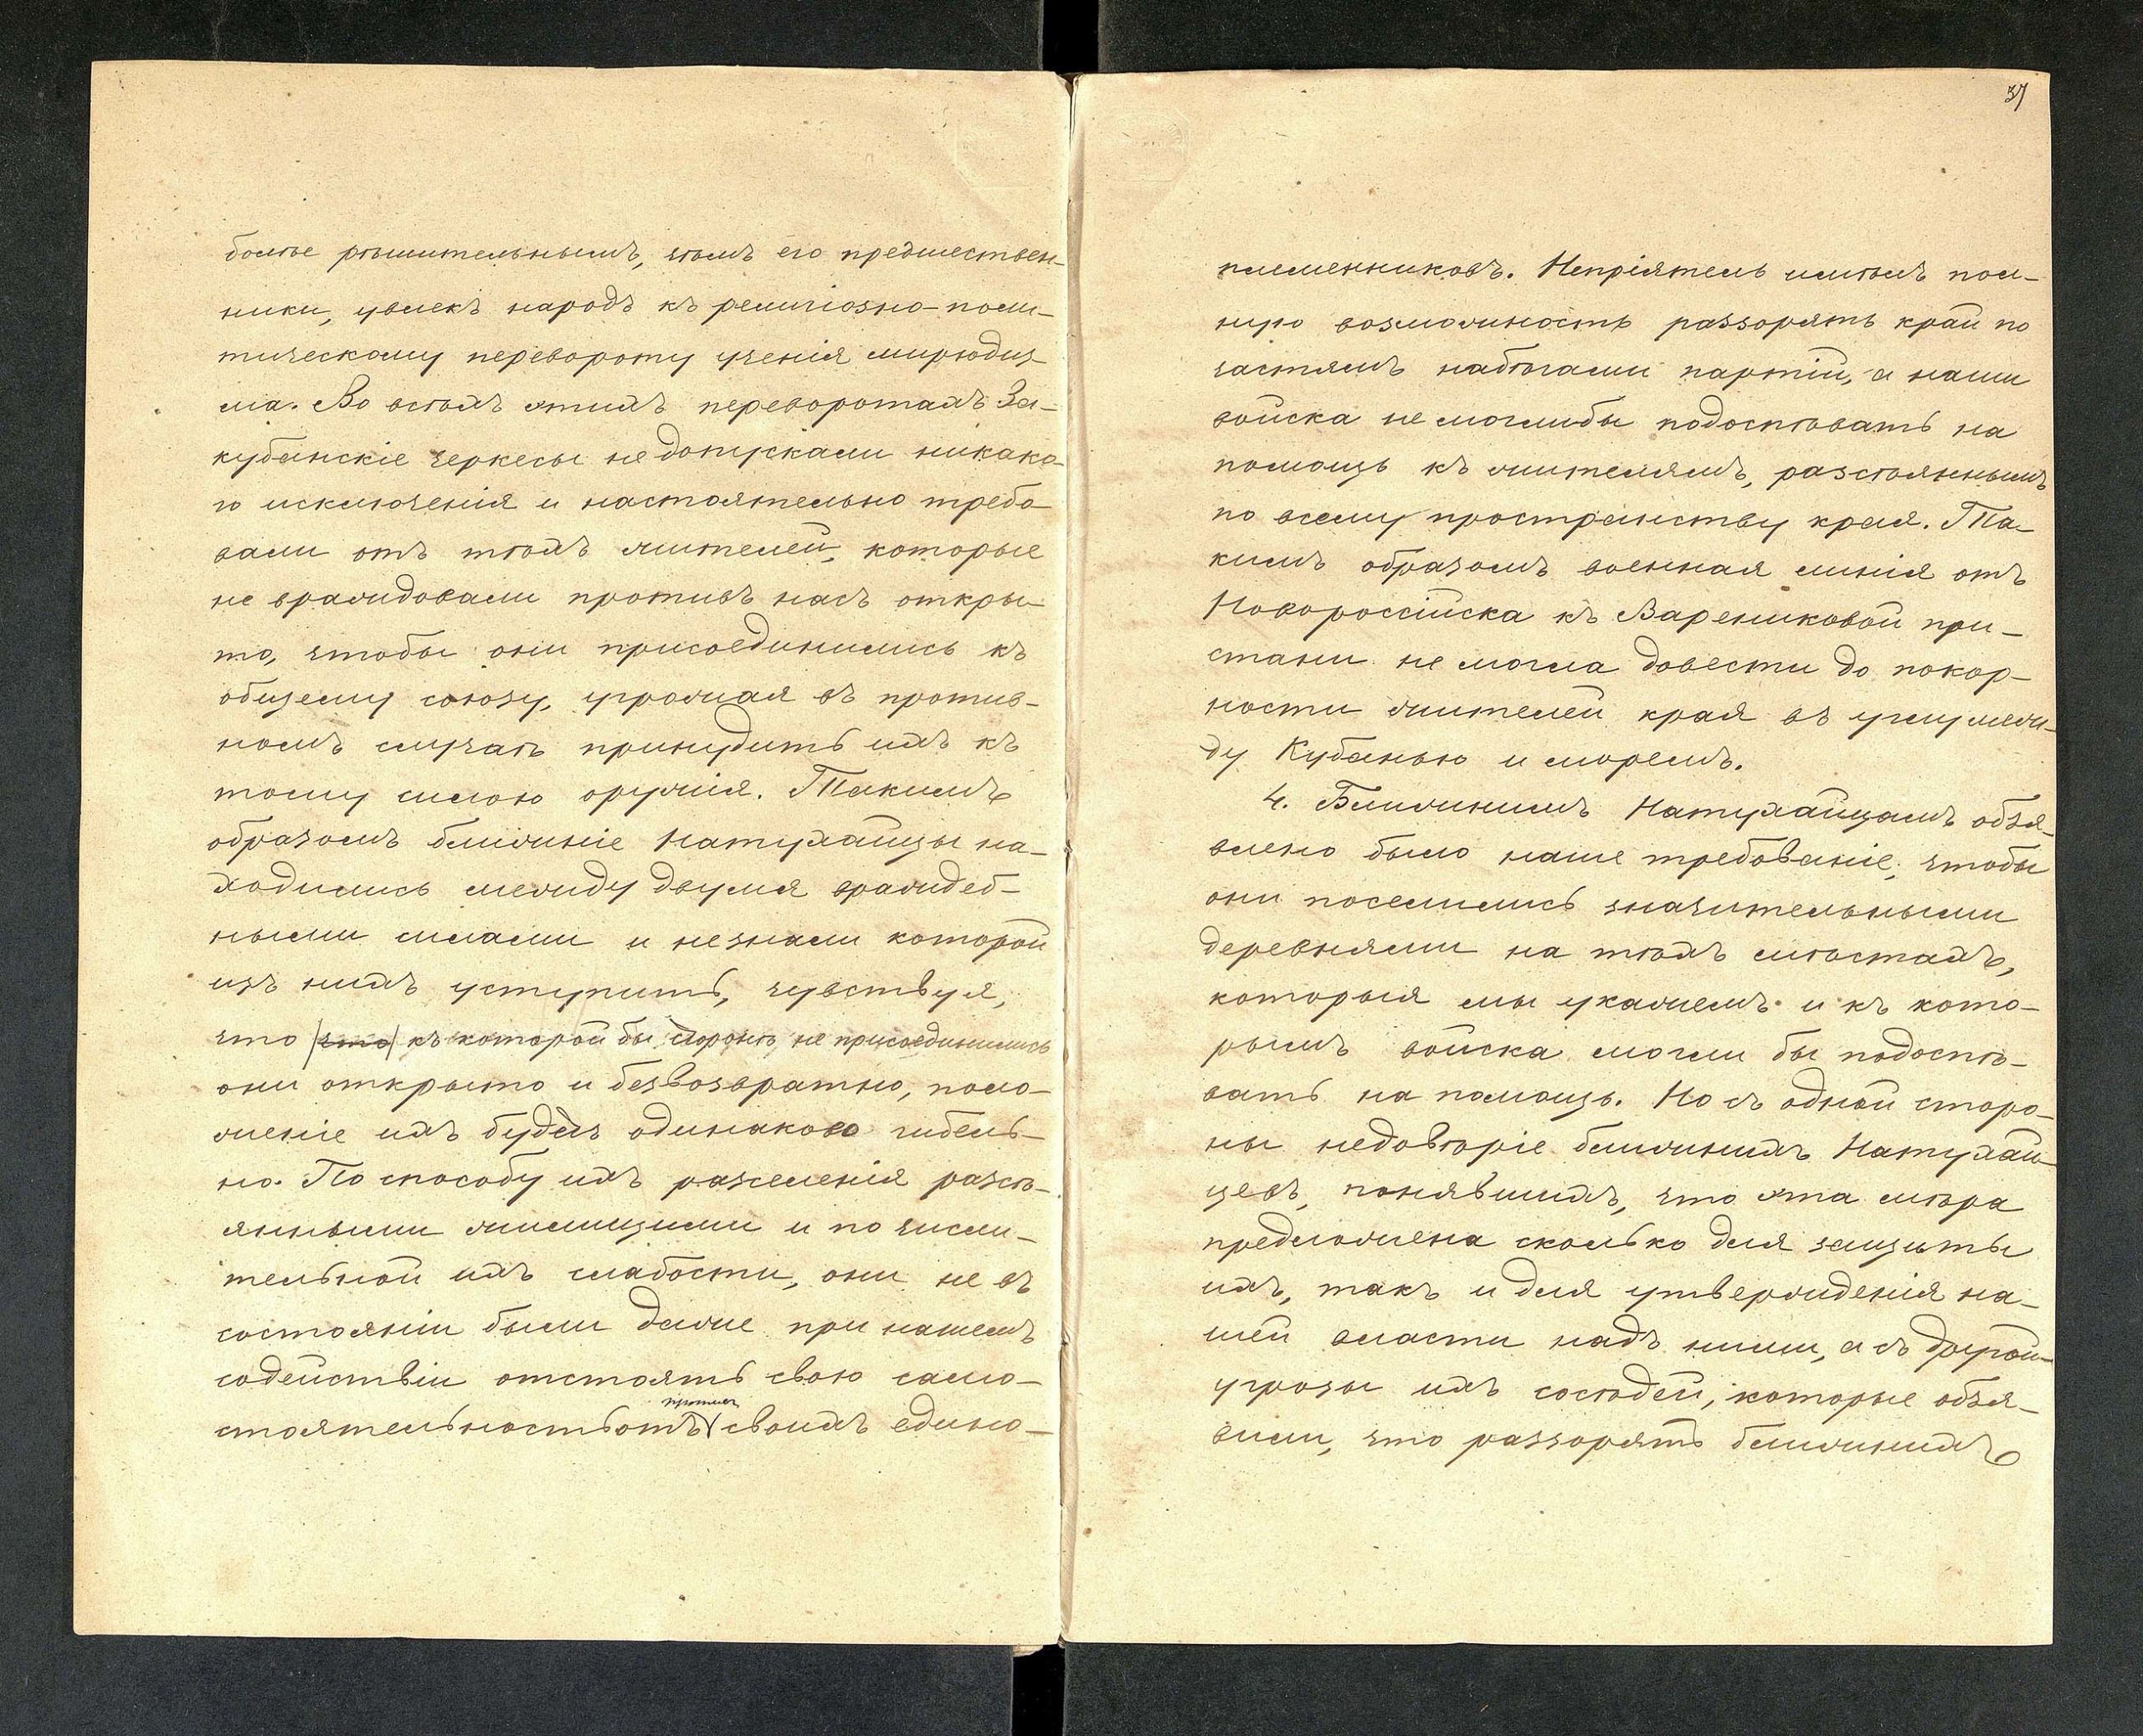 болѣе рѣшительнымъ, чѣмъ его предшествен-
ники, увлекъ народъ къ религіозно-поли-
тическому перевороту ученія мирюдиз-
ма. Во всѣхъ этихъ переворотахъ За-
кубанскіе черкесы не допускали никако-
го исключенія и настоятельно требо-
вали отъ тѣхъ жителей, которые
не враждовали противъ насъ откры-
то, чтобы они присоединились къ
общему союзу, угрожая въ против-
номъ случаѣ принудить ихъ къ
тому силою оружія. Такимъ
образомъ ближніе Натухайцы на-
ходились между двумя враждеб-
ными силами и незнали которой
изъ нихъ уступить, чувствуя,
что что къ которой бы сторонѣ не присоединились
они открыто и безвозвратно, поло-
женіе ихъ будетъ одинаково гибель-
но. По способу ихъ разселенія разсѣ-
янными жилищами и по числи-
тельной ихъ слабости, они не въ
состояніи были даже при нашемъ
содействіи отстоять свою само-
противъ
стоятельность отъ своихъ едино-
37
племенниковъ. Непріятель имѣлъ пол-
ную возможность раззорять край по
частямъ набѣгами партій, а наши
войска не моглибы подоспѣвать на
помощь къ жителямъ, разсѣяннымъ
по всему пространству края. Та-
кимъ образомъ военная линія отъ
Новороссійска къ Варениковой при-
стани не могла довести до покор-
ности жителей края въ углу меж-
ду Кубанью и моремъ.
4. Ближнимъ Натухайцамъ объя-
влено было наше требованіе, чтобы
они поселились значительными
деревнями на тѣхъ мѣстахъ,
которыя мы укажемъ и къ кото-
рымъ войска могли бы подоспѣ-
вать на помощь. Но съ одной сторо-
ны недовѣріе ближнихъ Натухай-
цевъ, понявшихъ, что эта мѣра
предложена сколько для защиты
ихъ, такъ и для утвержденія на-
шей власти надъ ними, а съ другой-
угрозы ихъ сосѣдей, которые объя-
вили, что раззорятъ ближнихъ